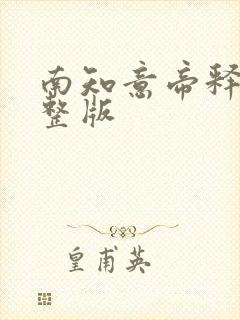 南知意帝释
整版
皇甫英